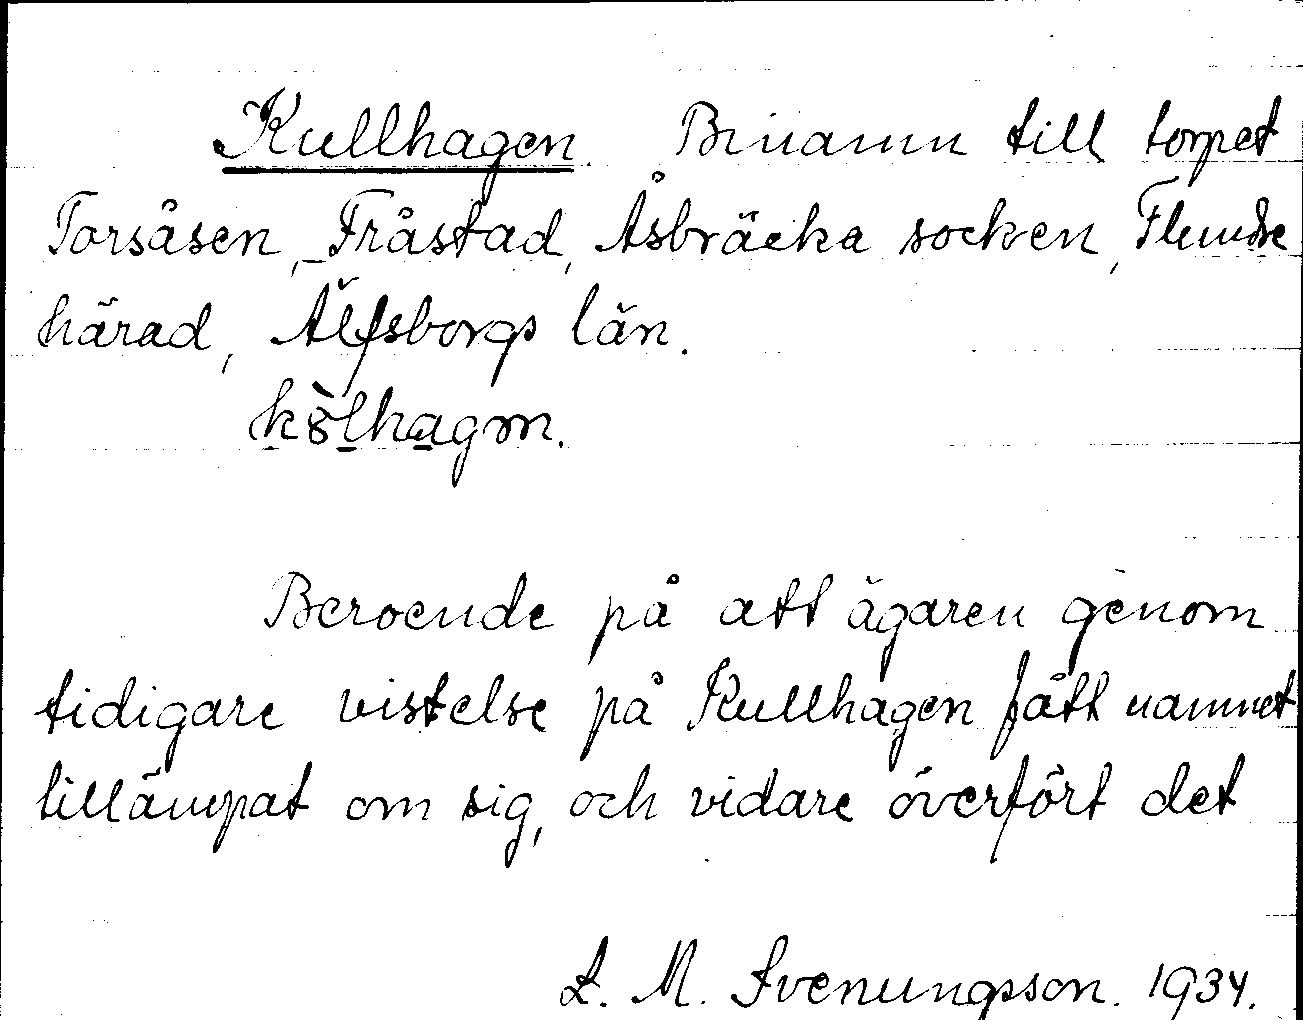 Kullhagen. Binamn till torpet
Torsåsen, Fråstad, Åsbräcka socken, Flundre
härad, Älfsborgs län.
kö̀lhagm.
Beroende på att ägaren genom
tidigare vistelse på Kullhagen fått namnet
tillämpat om sig, och vidare överfört det
L. M. Svenungsson. 1934.